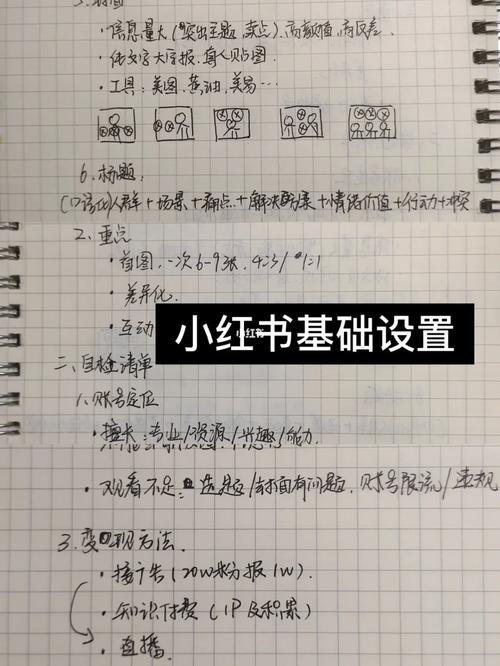 5. 封面
· 信息量大(突出主题,卖点).高颜值,高反差.
· 纯文字大字报.真人贴图.
· 工具:美图.黄油.美易…
6. 标题.
(口语化)人群+场景+痛点+解决方案+情绪价值+行动+
2. 重点
· 首图.一次6-9张.4:3/1:1
· 差异化.
· 互动
小红书
小红书基础设置
二、自检清单
1. 账号定位
· 擅长:专业/资源/兴趣/能力.
· 观看不足:选题/封面有问题.账号限流/违规
3. 变现方法.
· 接广告(20W粉报1W).
· 知识付费(IP及积累)
· 直播.